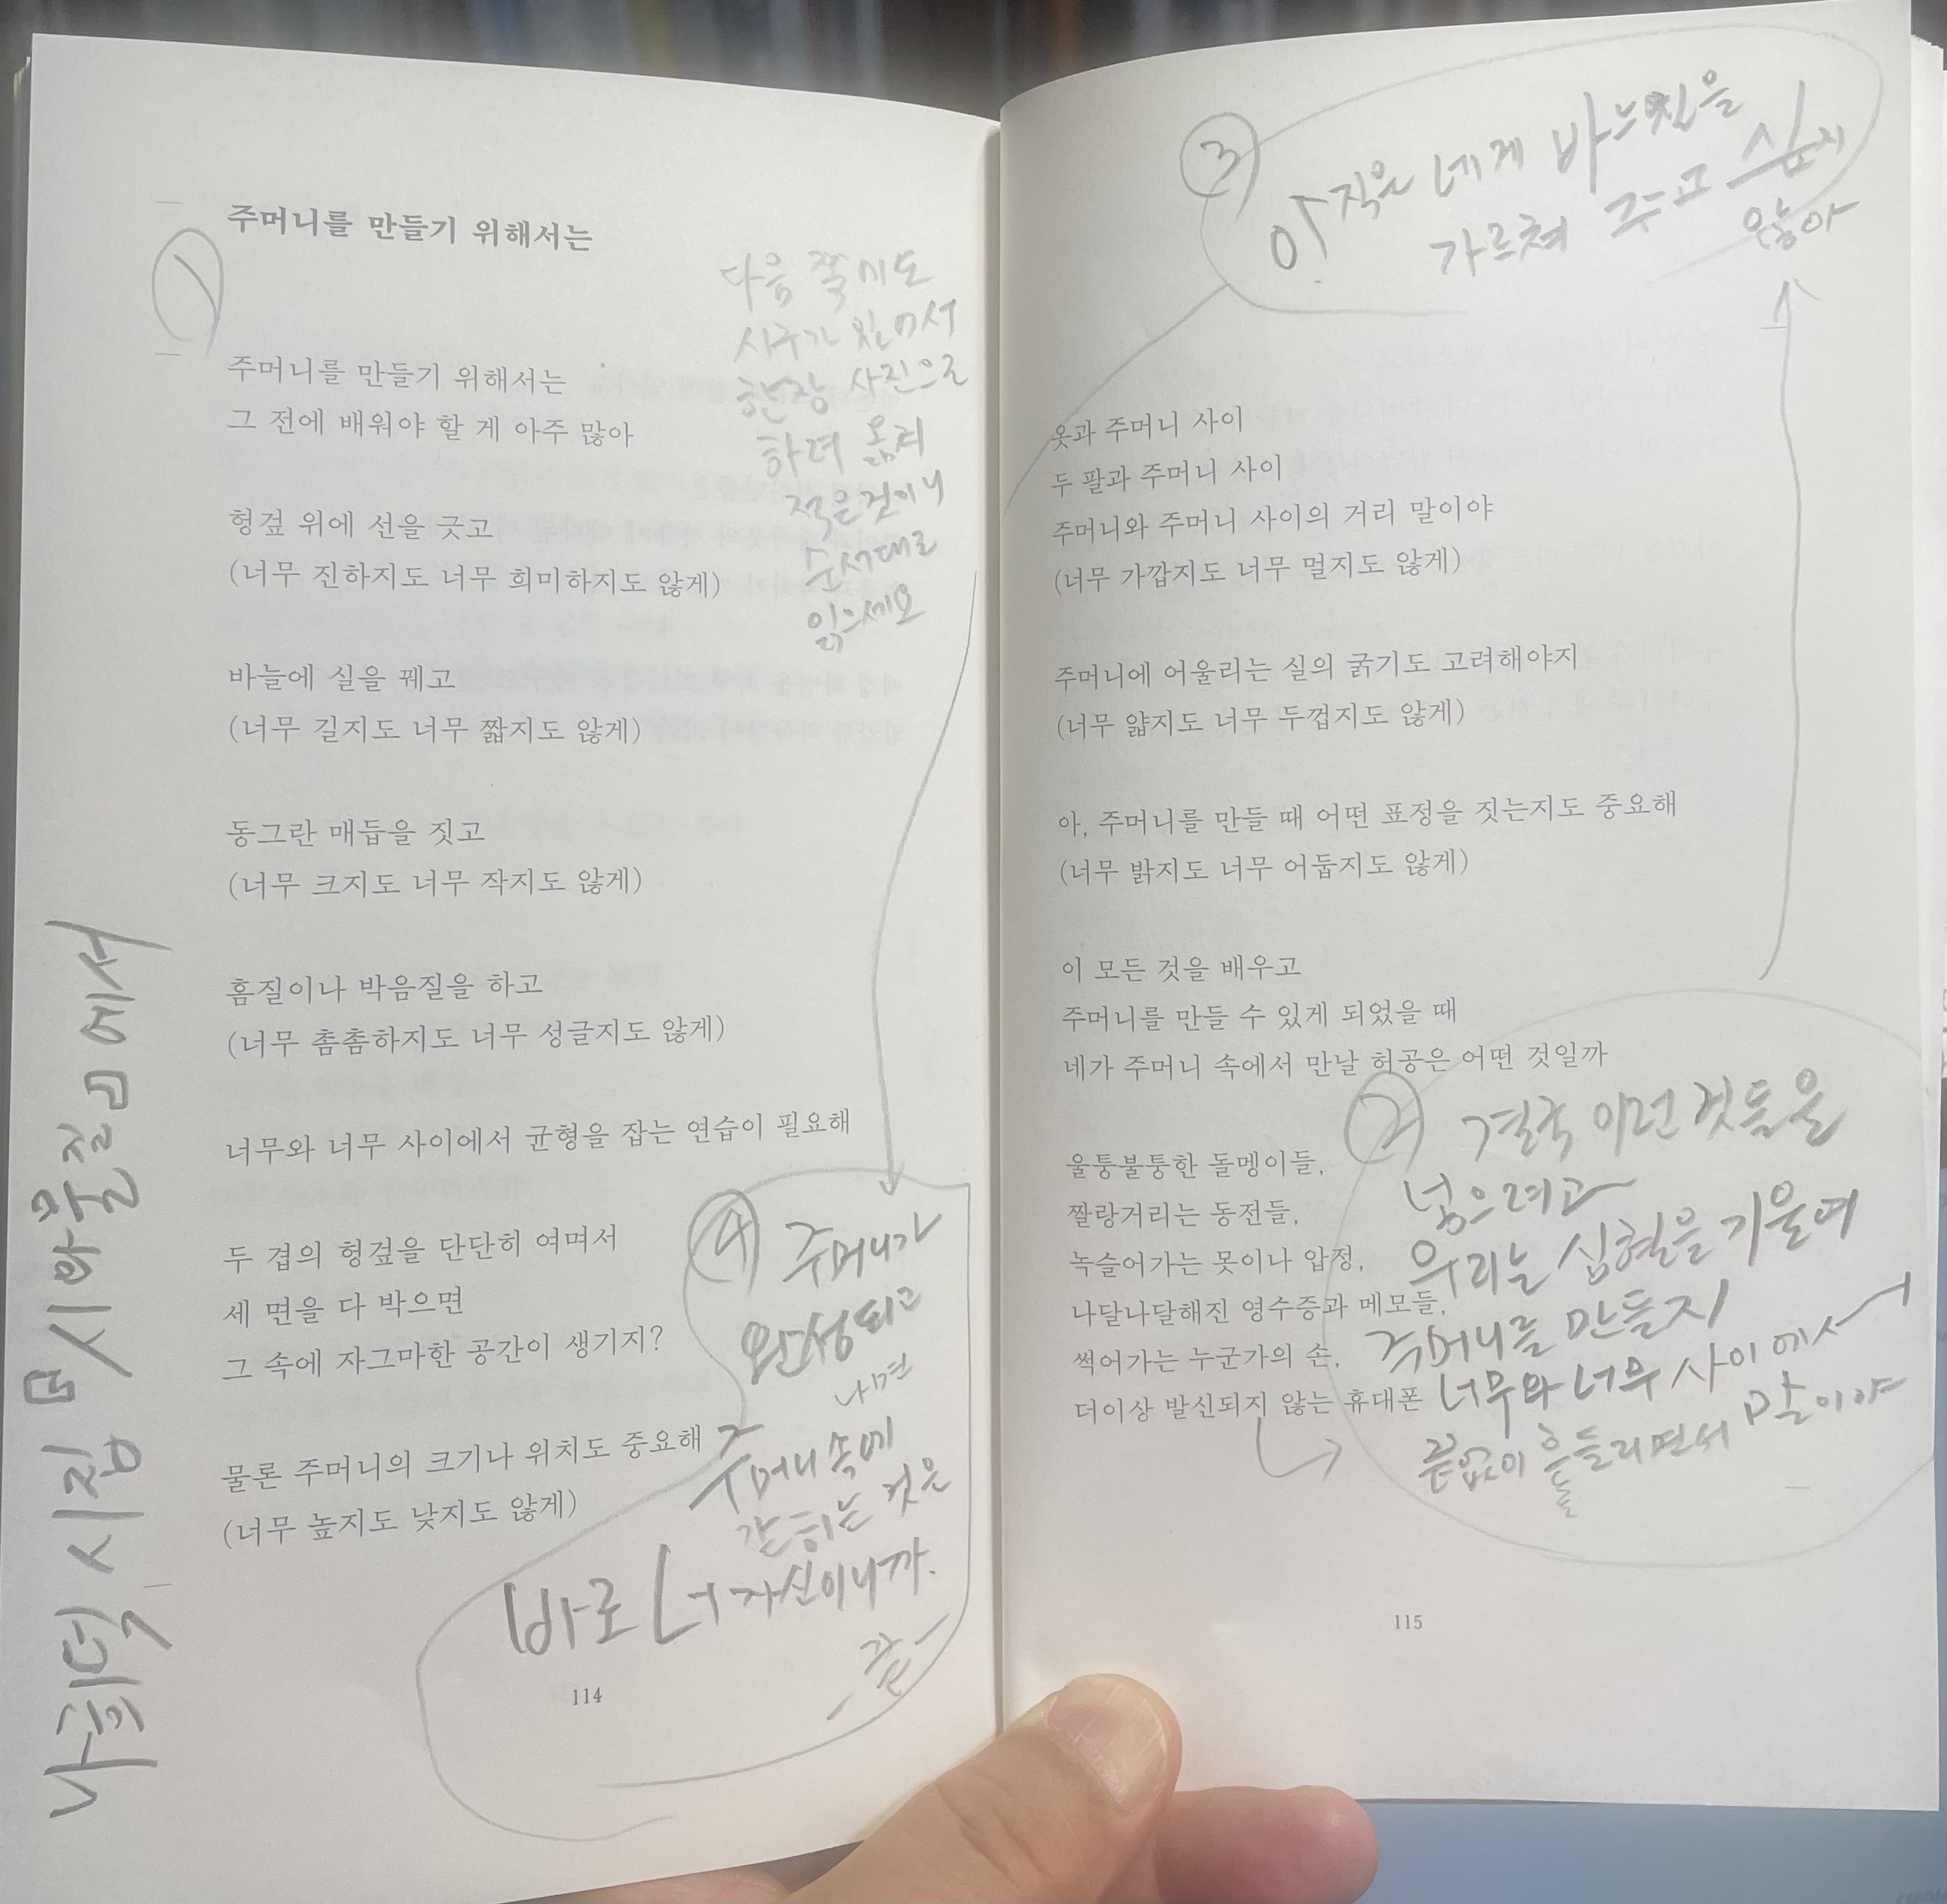 주머니를 만들기 위해서는
1
다음 쪽에도
시구가 있어서
한장 사진으로
하려 옮겨
적은것이니
순서대로
읽으세요
주머니를 만들기 위해서는
그 전에 배워야 할 게 아주 많아
헝겊 위에 선을 긋고
(너무 진하지도 너무 희미하지도 않게)
바늘에 실을 꿰고
(너무 길지도 너무 짧지도 않게)
동그란 매듭을 짓고
(너무 크지도 너무 작지도 않게)
홈질이나 박음질을 하고
(너무 촘촘하지도 너무 성글지도 않게)
너무와 너무 사이에서 균형을 잡는 연습이 필요해
두 겹의 헝겊을 단단히 여며서
세 면을 다 박으면
그 속에 자그마한 공간이 생기지?
물론 주머니의 크기나 위치도 중요해
(너무 높지도 낮지도 않게)
114
나희덕 시집 『시와 물질』에서
옷과 주머니 사이
두 팔과 주머니 사이
주머니와 주머니 사이의 거리 말이야
(너무 가깝지도 너무 멀지도 않게)
주머니에 어울리는 실의 굵기도 고려해야지
(너무 얇지도 너무 두껍지도 않게)
아, 주머니를 만들 때 어떤 표정을 짓는지도 중요해
(너무 밝지도 너무 어둡지도 않게)
이 모든 것을 배우고
주머니를 만들 수 있게 되었을 때
네가 주머니 속에서 만날 허공은 어떤 것일까
울퉁불퉁한 돌멩이들,
짤랑거리는 동전들,
녹슬어가는 못이나 압정,
나달나달해진 영수증과 메모들,
썩어가는 누군가의 손,
더이상 발신되지 않는 휴대폰
2 결국 이런 것들을
넣으려고
우리는 심혈을 기울여
주머니를 만들지
너무와 너무 사이에서
끝없이 흔들리면서 말이야
115
3 아직은 네게 바느질을
가르쳐 주고 싶지
않아
4 주머니가
완성되고
나면
주머니 속에
갇히는 것은
바로 너 자신이니까.
- 끝 -